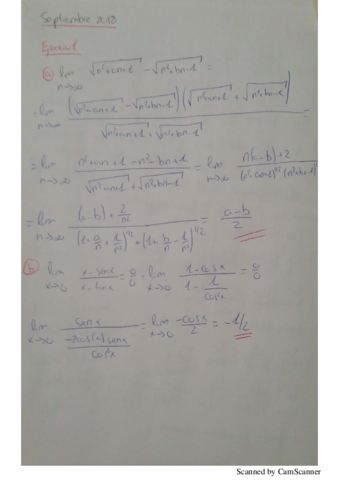 Septiembre 2018
Ejercicio 1
a) lim n→∞ √(n²+an+1) - √(n²+bn-1) =
= lim n→∞ (√(n²+an+1) - √(n²+bn-1)) (√(n²+an+1) + √(n²+bn-1)) / √(n²+an+1) + √(n²+bn-1) =
= lim n→∞ n²+an+1-n²-bn+1 / √(n²+an+1) + √(n²+bn-1) = lim n→∞ n(a-b)+2 / (n²+an+1)^1/2 (n²+bn-1)
= lim n→∞ (a-b) + 2/n² / (1+a/n+1/n²)^1/2 + (1+b/n-1/n²)^1/2 = a-b / 2
b) lim x→0 x-senx / x-tanx = 0/0 = lim x→0 1-cosx / 1 - 1/cos²x = 0/0
lim x→0 senx / -2cos(x)senx / cos⁴x = lim x→0 -cosx / 2 = -1/2
Scanned by CamScanner